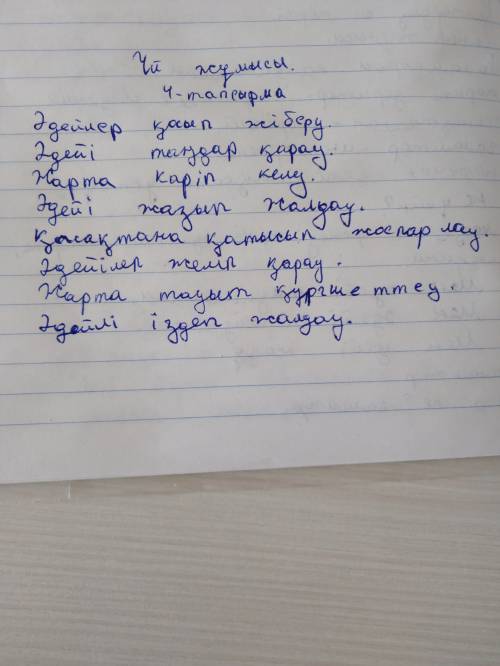 Үй жұмысы.
4-тапсырма
Әдейлер қсып жіберу.
Әдейі таңдар қарау.
Жарта кәріп келу.
Әдейі жазып жалдау.
Қасақтана қатысып жоспарлау.
Әдейілер желір қарау.
Жарта тауып
Әдейлі іздеп жалдау.